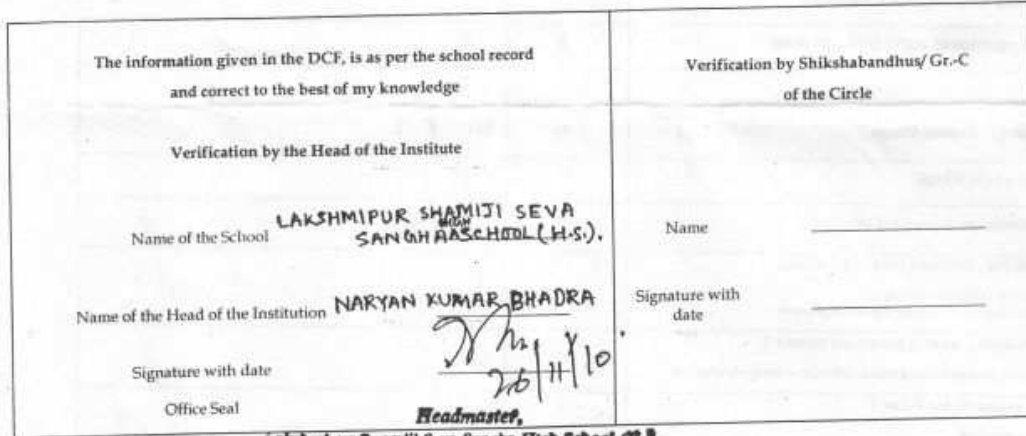 The information given in the DCF, is as per the school record
and correct to the best of my knowledge
Verification by the Head of the Institute
Name of the School LAKSHMIPUR SHAMIJI SEVA
SANGHA HIGH SCHOOL (H.S.).
Name of the Head of the Institution NARYAN KUMAR BHADRA
Signature with date
26/11/10
Office Seal
Headmaster,
High School
Verification by Shikshabandhus/ Gr.-C
of the Circle
Name
Signature with
date